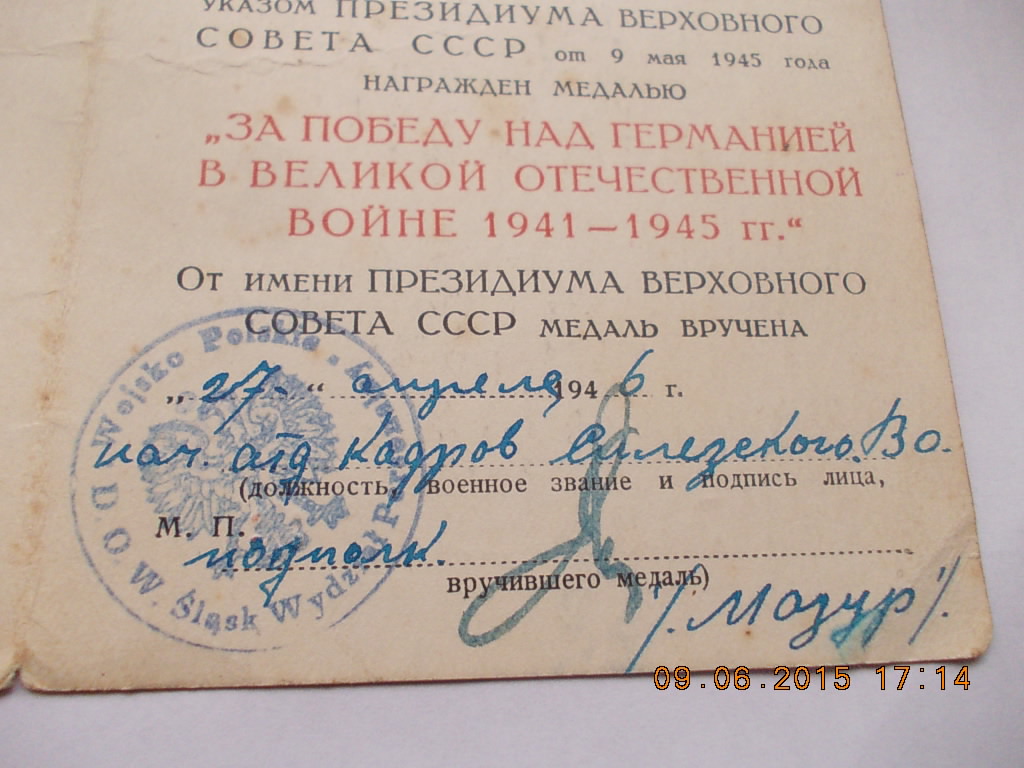 УКАЗОМ ПРЕЗИДИУМА ВЕРХОВНОГО
СОВЕТА СССР от 9 мая 1945 года
НАГРАЖДЕН МЕДАЛЬЮ
„ЗА ПОБЕДУ НАД ГЕРМАНИЕЙ
В ВЕЛИКОЙ ОТЕЧЕСТВЕННОЙ
ВОЙНЕ 1941—1945 гг.“
От имени ПРЕЗИДИУМА ВЕРХОВНОГО
СОВЕТА СССР МЕДАЛЬ ВРУЧЕНА
„27“ апреля 1946 г.
нач. отд Кадров Силезского. Во.
(должность, военное звание и подпись лица,
М. П.
подполк.
вручившего медаль)
/. Мазур /.
Wojsko Polskie
D.O.W. Śląsk Wydział
09.06.2015 17:14